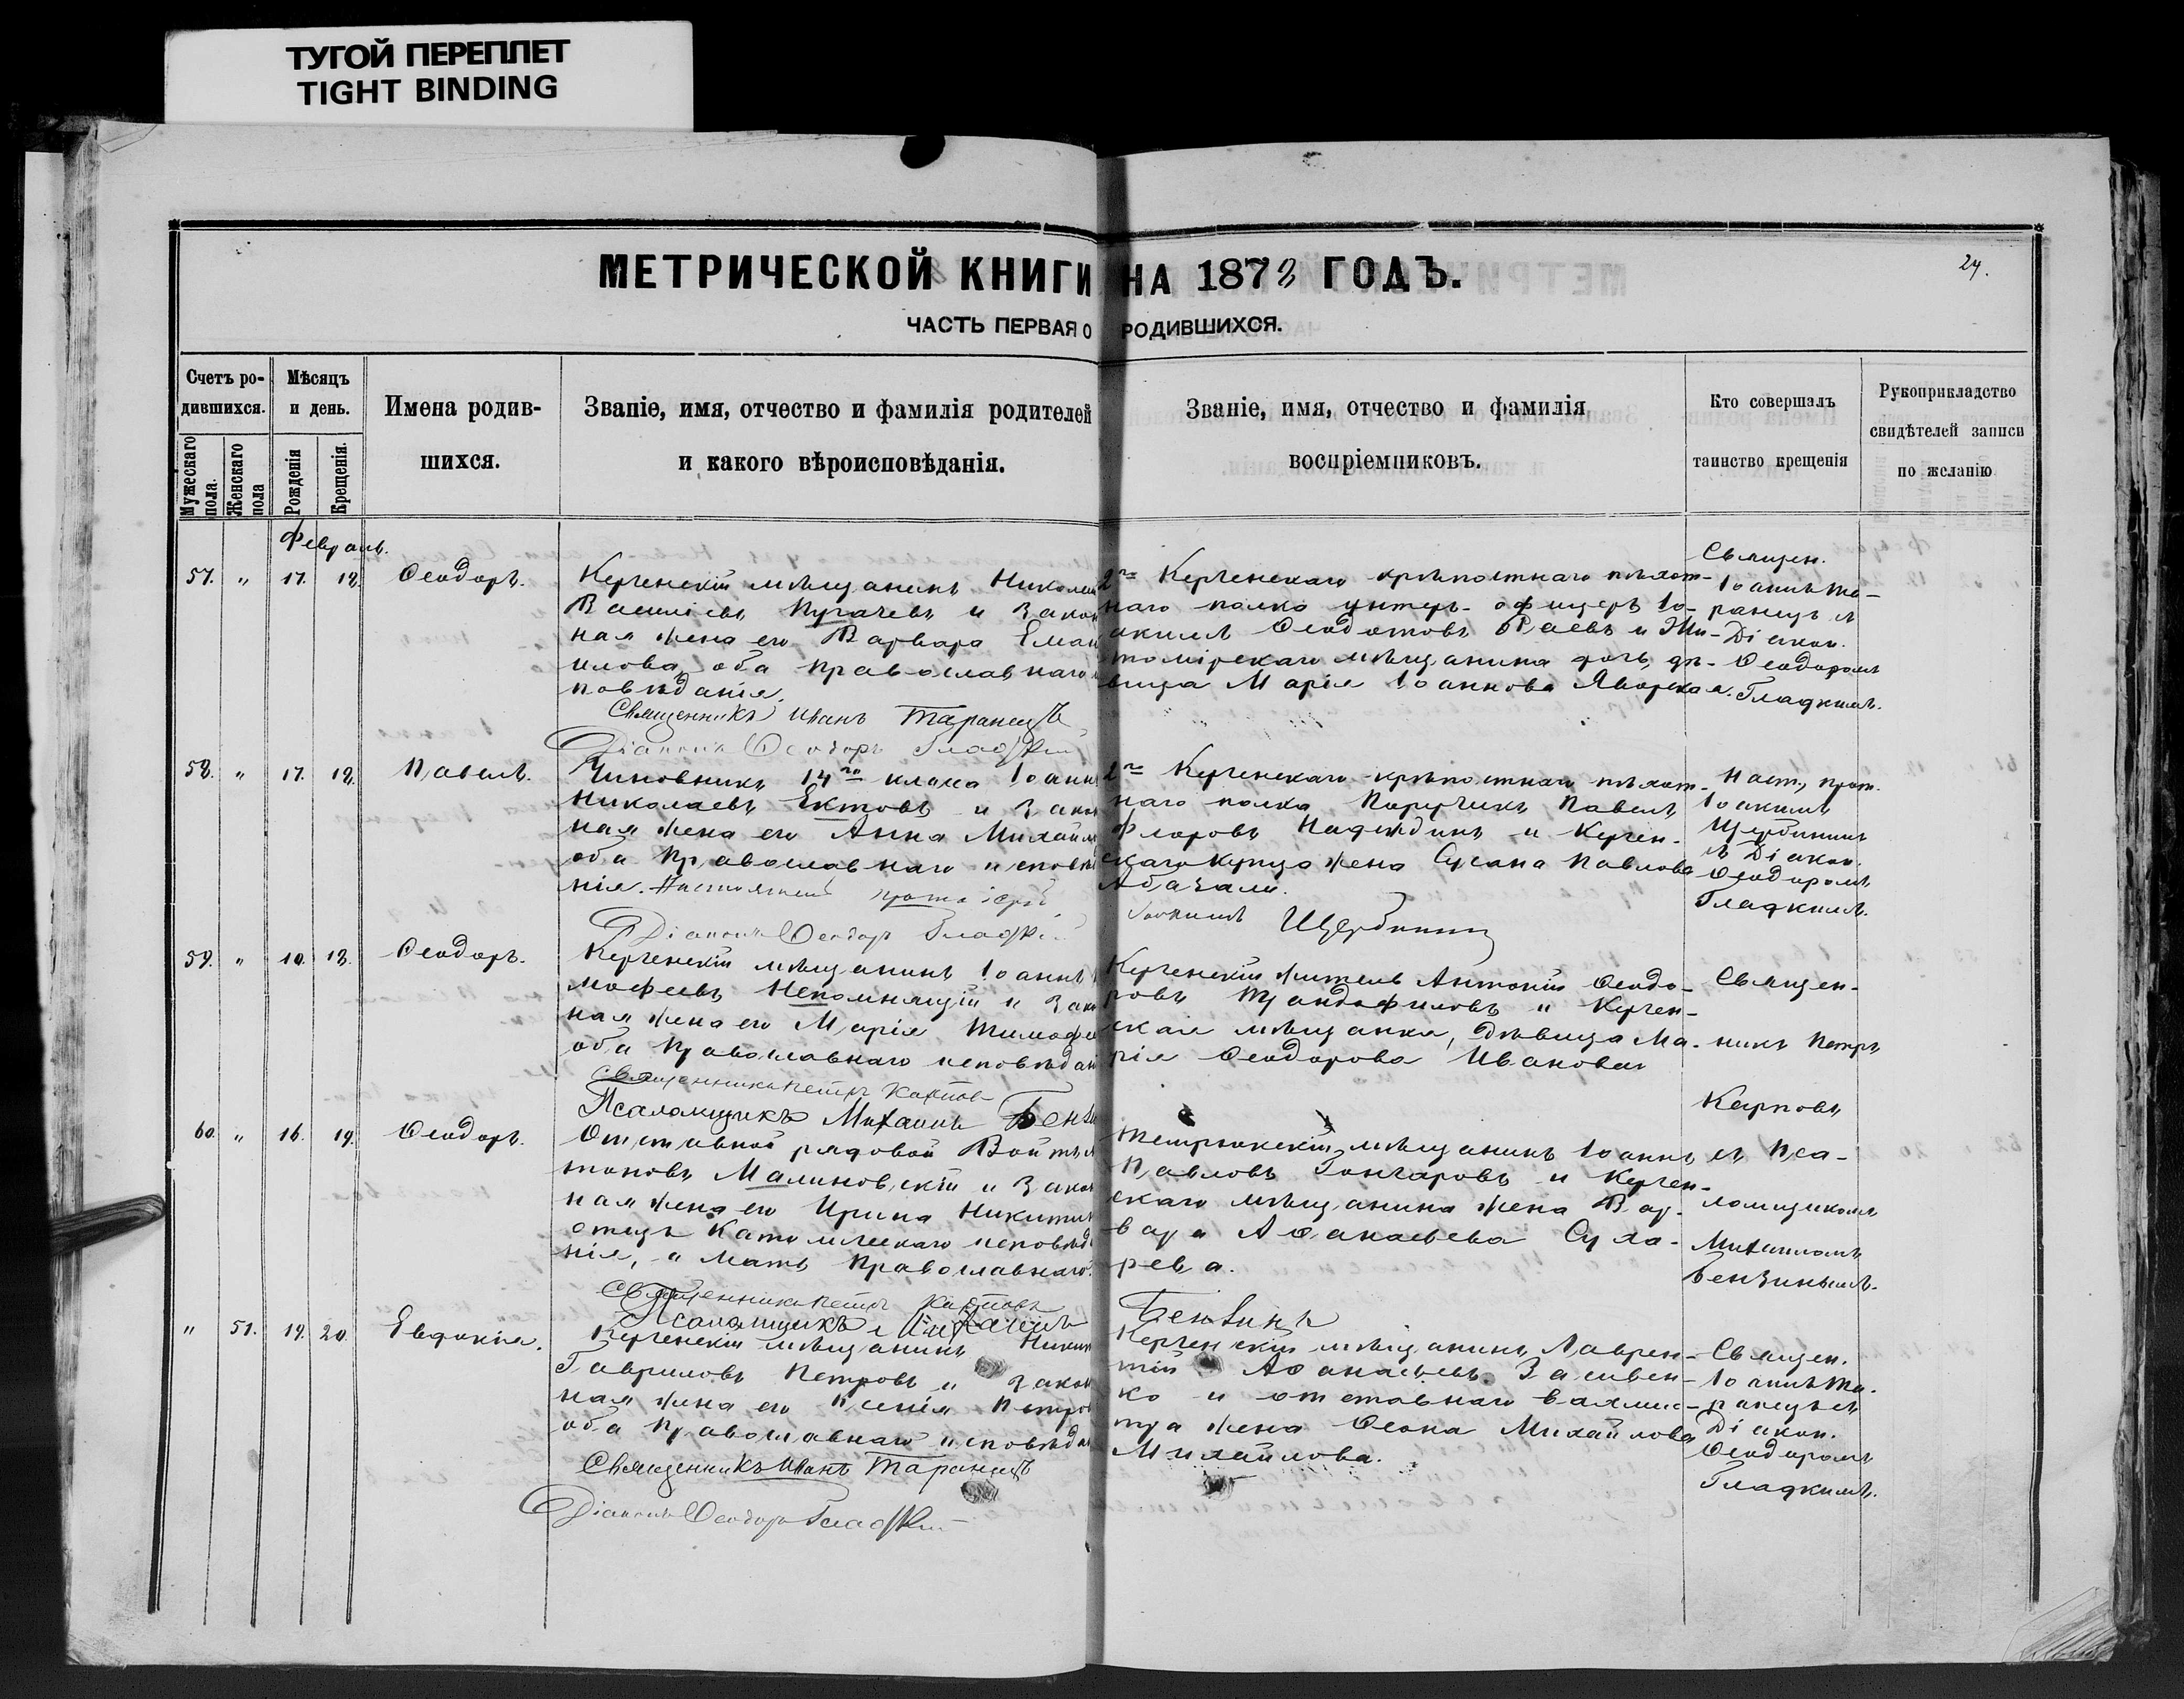 ТУГОЙ ПЕРЕПЛЕТ
TIGHT BINDING
МЕТРИЧЕСКОЙ КНИГИ НА 1873 ГОДЪ.
24.
ЧАСТЬ ПЕРВАЯ О РОДИВШИХСЯ.
Счетъ ро-
дившихся.
Мужескаго пола.
Женскаго пола
Мѣсяцъ
и день.
Рожденія
Крещенія.
Имена родив-
шихся.
Званіе, имя, отчество и фамилія родителей
и какого вѣроисповѣданія.
Званіе, имя, отчество и фамилія
воспріемниковъ.
Кто совершалъ
таинство крещенія
Рукоприкладство
свидѣтелей записи
по желанію
Февраль.
57. " 17. 18. Ѳеодоръ.
Керченскій мѣщанинъ Николай
Василіевъ Пугачевъ и закон
ная жена его Варвара Еман
илова, оба православнаго
повѣданія.
Священникъ Иванъ Таранецъ
Діаконъ Ѳеодоръ Гладкій
2го Керченскаго крѣпостнаго пѣхот-
наго полка унтеръ-офицеръ Іо-
акимъ Ѳеодотовъ и Жи-
томірскаго мѣщанина дочь, дѣ-
вица Марія Іоаннова Яворская.
Священ.
Іоаннъ Та-
ранецъ съ
Діакон.
Ѳеодоромъ
Гладкимъ.
58. " 17. 18. Павелъ.
Чиновникъ 14го класа Іоанн
Николаевъ Ектовъ и закон
ная жена его Анна Михайл
оба Православнаго исповѣд
нія. Настоятель протоіерей
Діаконъ Ѳеодоръ Гладкій
2го Керченскаго крѣпостнаго пѣхот-
наго полка Поручикъ Павелъ
Флоровъ Надеждинъ и Керчен-
скаго купца жена Сусана Павлова
Абазали.
Іоакимъ Щербининъ
Наст. прот.
Іоакимъ
Щербининъ
съ Діакон.
Ѳеодоромъ
Гладкимъ.
59. " 10. 18. Ѳеодоръ.
Керченскій мѣщанинъ Іоаннъ
моѳеевъ Непомнящій и зако
ная жена его Марія Тимоѳе
оба Православнаго исповѣдані
Священникъ Петръ Карповъ
Псаломщикъ Михаилъ Бензи
Керченскій житель Антоній Ѳеодо-
ровъ Трандофиловъ и Керчен-
ская мѣщанка, дѣвица Ма-
рія Ѳеодорова Иванова
Священ-
никъ Петръ
Карповъ
60. " 16. 19. Ѳеодоръ.
Отставной рядовой Войтѣх
тоновъ Малиновскій и закон
ная жена его Ирина Никитин
отецъ Католическаго исповѣд
нія, а мать Православнаго.
Священникъ Петръ Карповъ
Псаломщикъ Михаилъ
Темрюкскій мѣщанинъ Іоаннъ
Павловъ Гончаровъ и Керчен-
скаго мѣщанина жена Вар-
вара Аѳанасьева Суха-
рева.
Бензинъ
съ Пса-
ломщикомъ
Михаиломъ
Бензинымъ.
" 51. 19. 20. Евдокія.
Керченскій мѣщанинъ Никит
Гавриловъ Петровъ и закон
ная жена его Ксенія Петров
оба Православнаго исповѣдан
Священникъ Иванъ Таранецъ
Діаконъ Ѳеодоръ Гладкій
Керченскій мѣщанинъ Лаврен-
тій Аѳанасьевъ Заливен-
ко и отставнаго вахмис-
тра жена Ѳеона Михайлова
Михайлова.
Священ.
Іоаннъ Та-
ранецъ съ
Діакон.
Ѳеодоромъ
Гладкимъ.